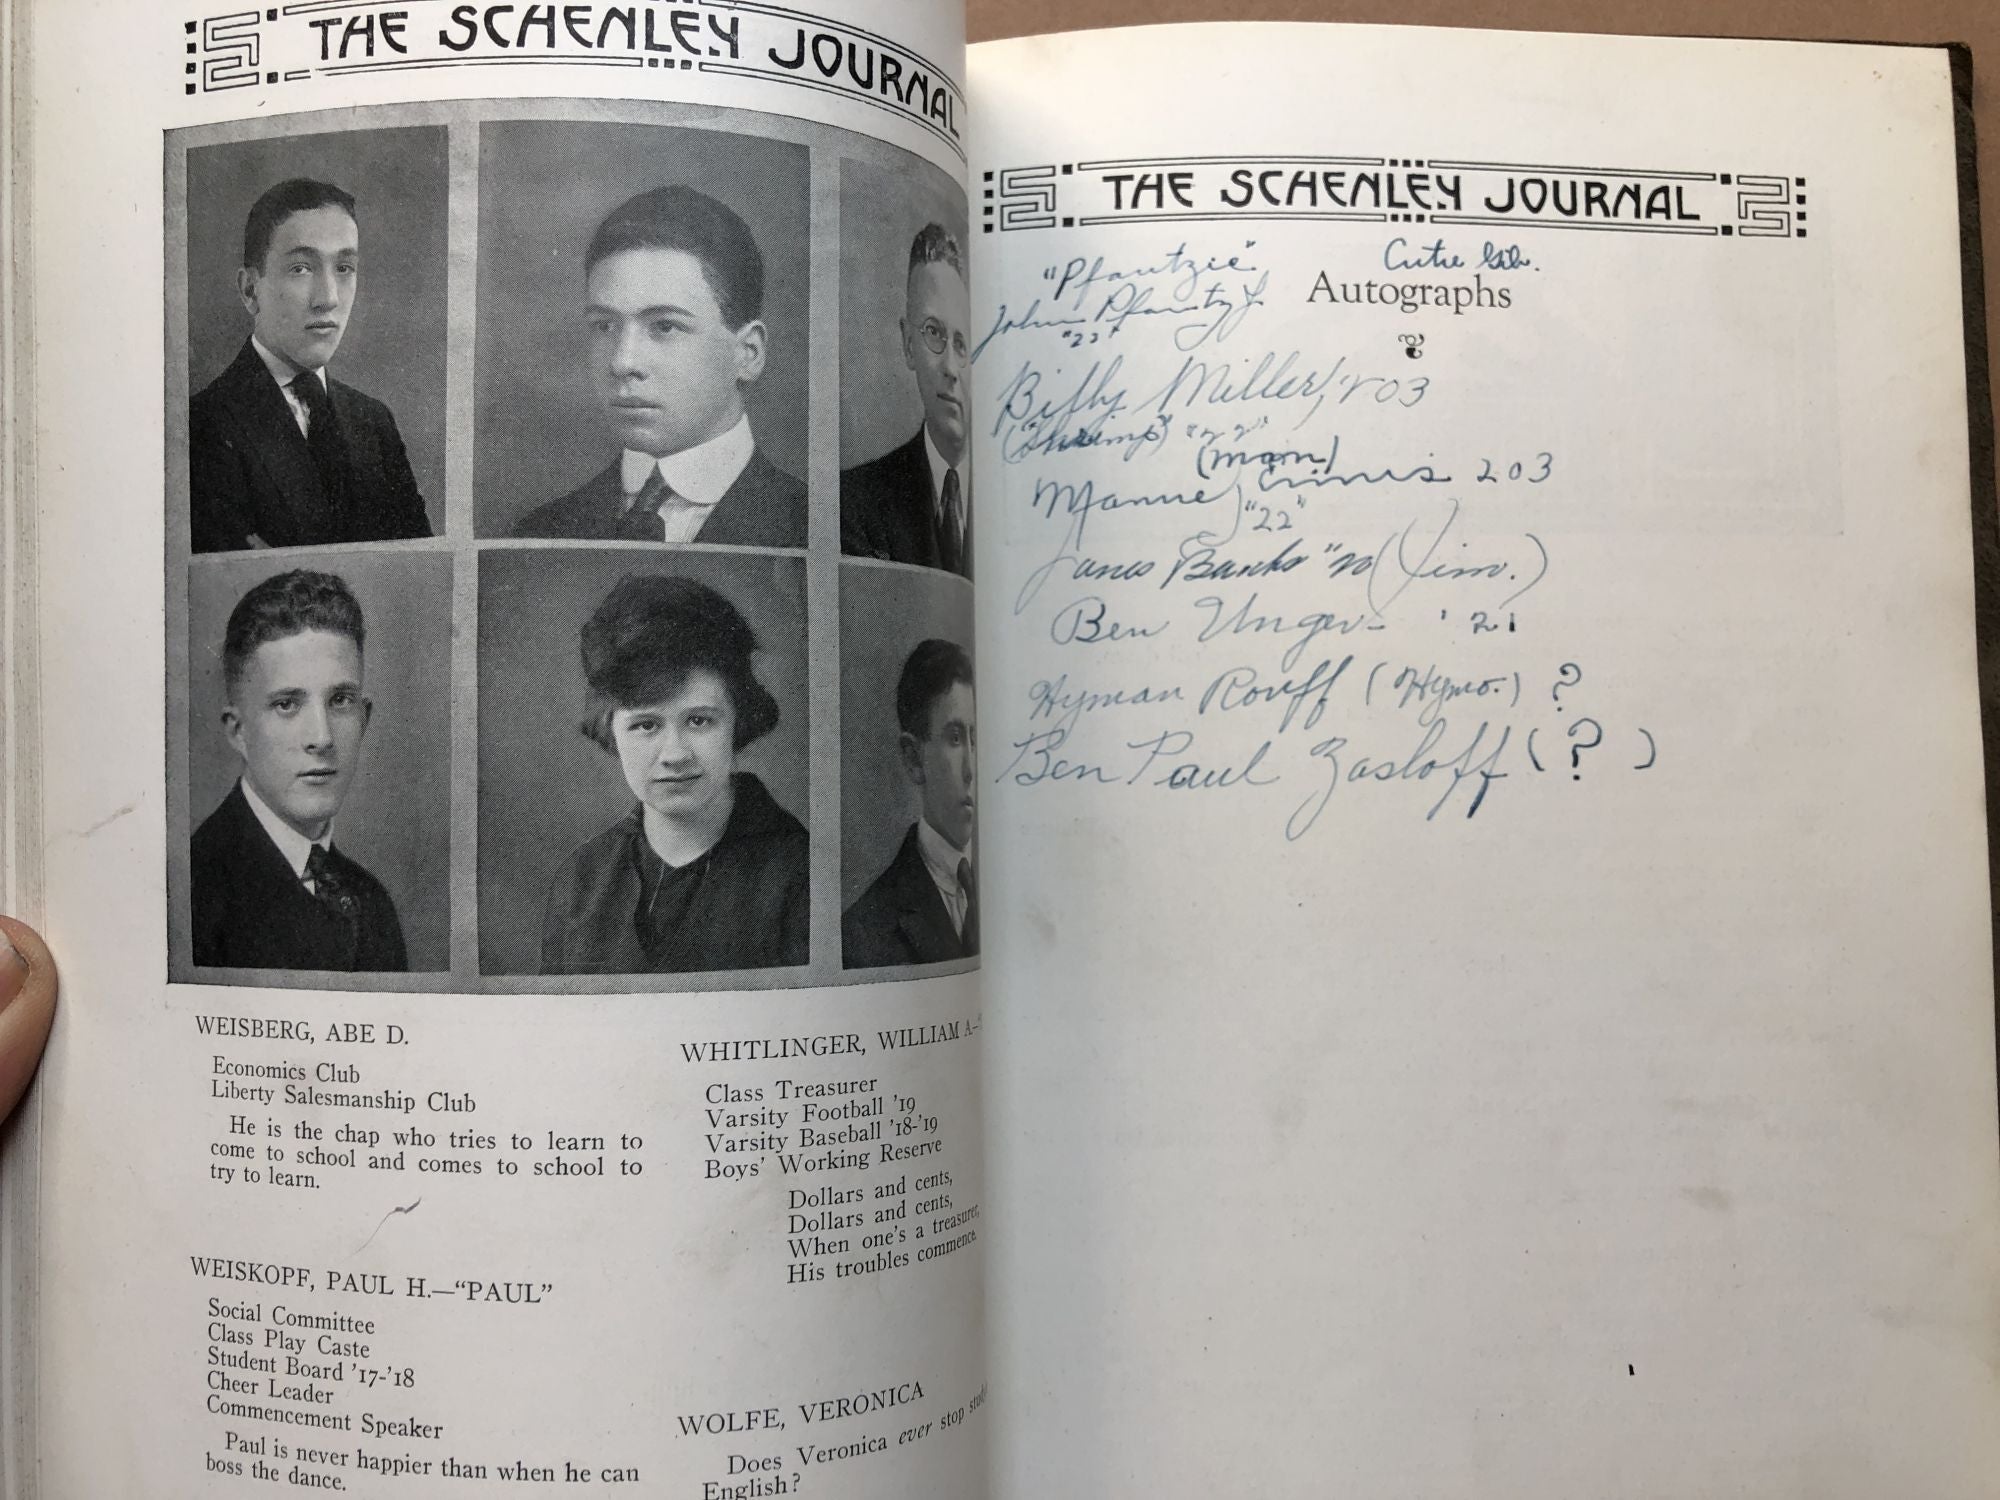 THE SCHENLEY JOURNAL
WEISBERG, ABE D.
Economics Club
Liberty Salesmanship Club
He is the chap who tries to learn to
come to school and comes to school to
try to learn.
WEISKOPF, PAUL H.—“PAUL”
Social Committee
Class Play Caste
Student Board ’17-’18
Cheer Leader
Commencement Speaker
Paul is never happier than when he can
boss the dance.
WHITLINGER, WILLIAM A.—
Class Treasurer
Varsity Football ’19
Varsity Baseball ’18-’19
Boys’ Working Reserve
Dollars and cents,
Dollars and cents,
When one’s a treasurer,
His troubles commence.
WOLFE, VERONICA
Does Veronica ever stop
English?
THE SCHENLEY JOURNAL
Autographs
"Pfantzie"
John Pfantz Jr.
"22"
Billy Miller, 203
("Shrimp") "22"
(Mam)
Mannie 203
"22"
James Banks (Jim.)
Ben Unger - '21
Hyman Rouff (Hymo.) ?
Ben Paul Zasloff (?)